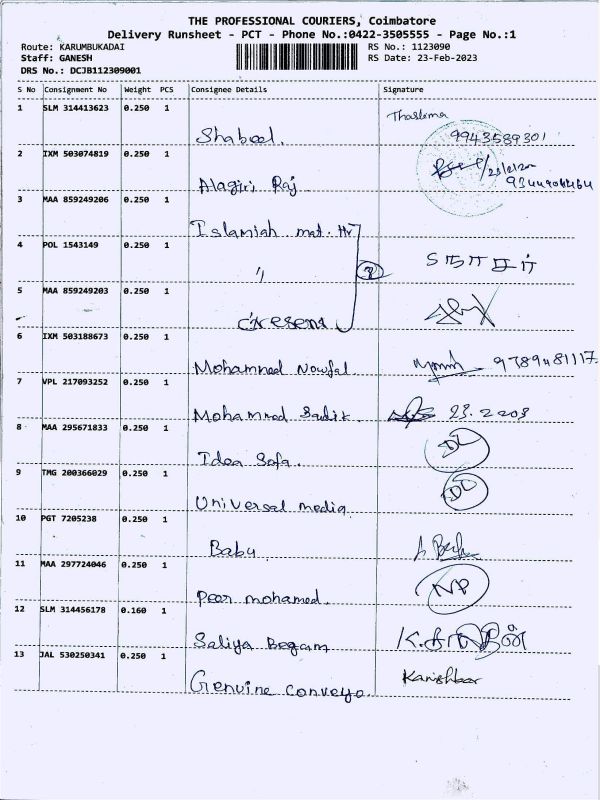 THE PROFESSIONAL COURIERS, Coimbatore
Delivery Runsheet - PCT - Phone No.:0422-3505555 - Page No.:1
Route: KARUMBUKADAI RS No.: 1123090
Staff: GANESH RS Date: 23-Feb-2023
DRS No.: DCJB112309001
S No Consignment No Weight PCS Consignee Details Signature
1 SLM 314413623 0.250 1 Shabeel. Thasleema
9943589301
2 IXM 503074819 0.250 1 Alagiri Raj
3 MAA 859249206 0.250 1 Islamiah mat. Hr
4 POL 1543149 0.250 1 "
5 MAA 859249203 0.250 1 Cresent
6 IXM 503188673 0.250 1 Mohammed Nowfal 9789481117
7 VPL 217093252 0.250 1 Mohammed Sadik 23.2.2023
8 MAA 295671833 0.250 1 Idea Sofa. DL
9 TMG 200366029 0.250 1 Universal media DL
10 PGT 7205238 0.250 1 Babu
11 MAA 297724046 0.250 1 Peer mohamed. NP
12 SLM 314456178 0.160 1 Saliya Begam
13 JAL 530250341 0.250 1 Genuine Conveyo.